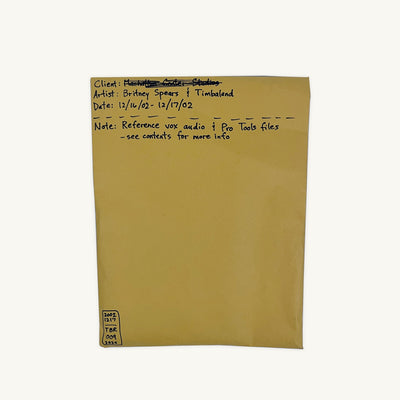 Client: Manhattan Center Studios
Artist: Britney Spears & Timbaland
Date: 12/16/02 - 12/17/02
Note: Reference vox audio & Pro Tools files
- see contents for more info
2002
1217
TBR
009
2024